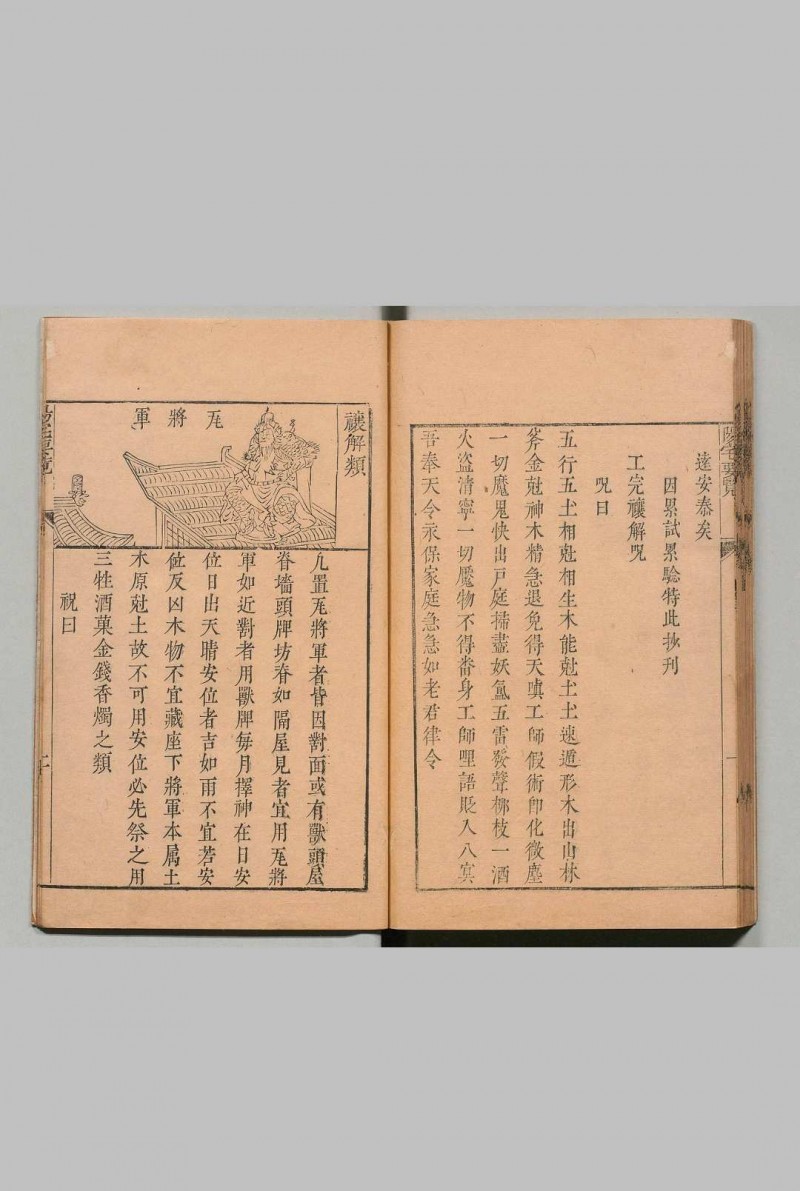 達安泰矣
因累試累驗特此抄刊
工完禳解咒
咒曰
五行五土相尅相生木能尅土土速遁形木出山林
斧金尅神木精急退免得天嗔工師假術即化微塵
一切魔鬼快出戶庭掃盡妖氛五雷發聲柳枝一洒
火盜清寧一切魘物不得畨身工師哩語貶入八冥
吾奉天令永保家庭急急如老君律令
禳解類
瓦將軍
凡置瓦將軍者皆因對面或有獸頭屋
脊墻頭牌坊脊如隔屋見者宜用瓦將
軍如近對者用獸牌每月擇神在日安
位日出天晴安位者吉如雨不宜若安
位反凶木物不宜藏座下將軍本属土
木原尅土故不可用安位必先祭之用
三牲酒菓金錢香燭之類
祝曰